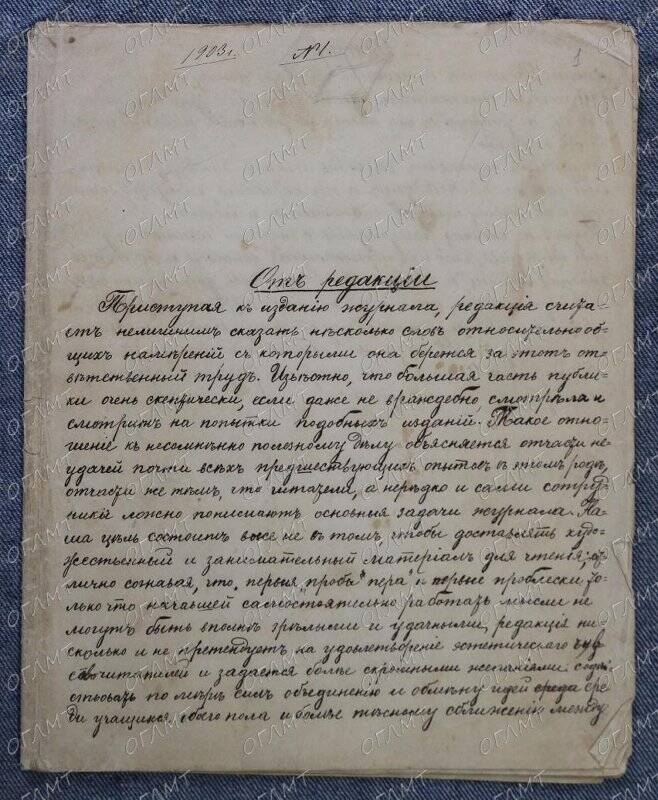 1903 г. №1.
1
Отъ редакціи
Приступая къ изданію журнала, редакція счита-
етъ нелишнимъ сказать нѣсколько словъ относительно об-
щихъ намѣреній съ которыми она берется за этотъ от-
вѣтственный трудъ. Извѣстно, что большая часть публи-
ки очень скептически, если даже не враждебно, смотрѣла и
смотритъ на попытки подобныхъ изданій. Такое отно-
шеніе къ несомнѣнно полезному дѣлу объясняется отчасти не-
удачей почти всѣхъ предшествующихъ опытовъ въ этомъ родѣ,
отчасти же тѣмъ, что читатели, а нерѣдко и сами сотруд-
ники ложно понимаютъ основныя задачи журнала. На-
ша цѣль состоитъ вовсе не въ томъ, чтобы доставлять худо-
жественный и занимательный матеріалъ для чтенія; от-
лично сознавая, что, первыя "пробы" пера и первые проблески то-
лько что начавшей самостоятельно работать мысли не
могутъ быть вполнѣ зрѣлыми и удачными, редакція ни-
сколько и не претендуетъ на удовлетвореніе эстетическаго чув
ства читателей и задается болѣе скромными желаніями: содѣй
ствовать по мѣрѣ силъ объединенію и обмѣну идей среда сре-
ди учащихся обоего пола и болѣе тѣсному сближенію между
ОГЛМТ